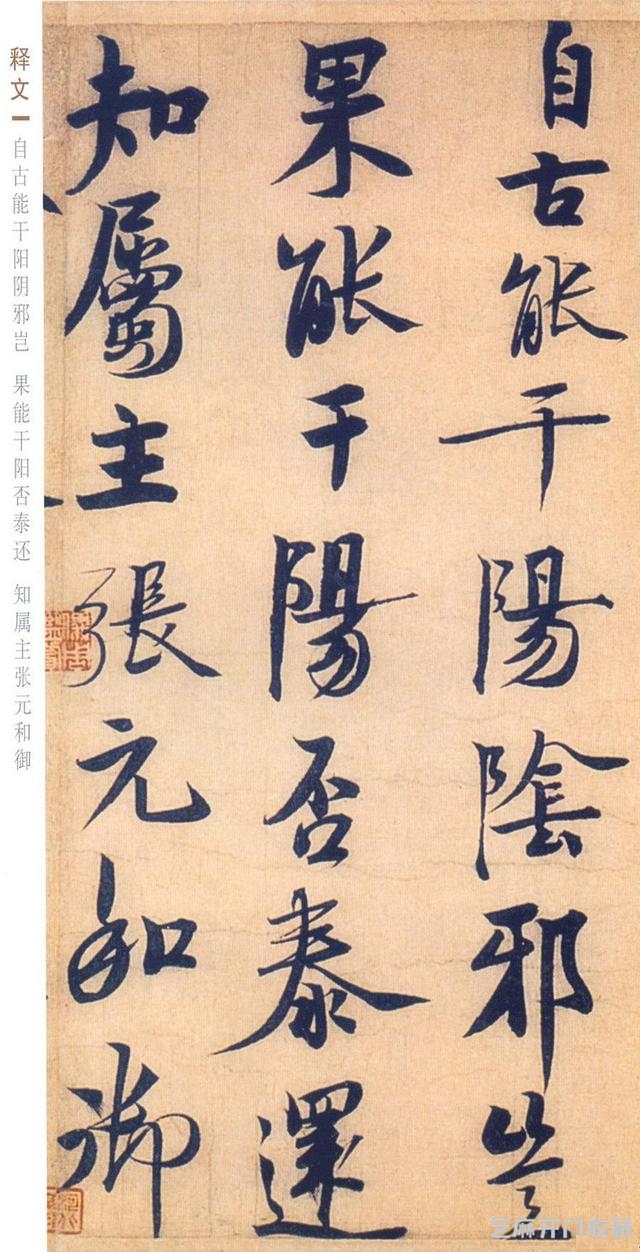 自古能干陽陰邪豈
果能干陽否泰還
知屬主張元和御
釋文
自古能干阳阴邪岂 果能干阳否泰还 知属主张元和御
芝麻开门收藏